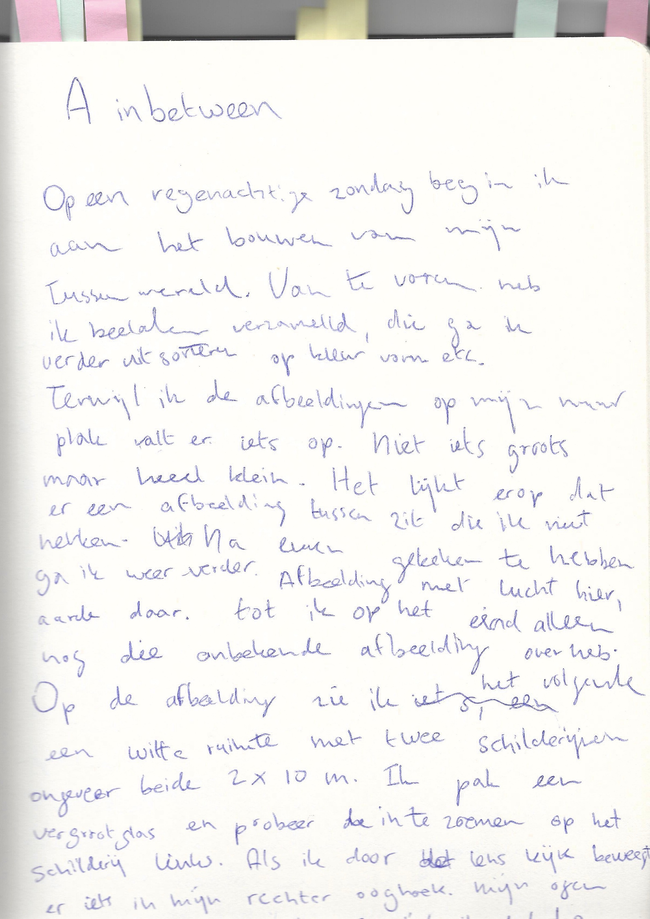 A inbetween
Op een regenachtige zondag begin ik
aan het bouwen van mijn
tussen wereld. Van te voren heb
ik beelden verzameld, die ga ik
verder uit sorteren op kleur vorm etc.
Terwijl ik de afbeeldingen op mijn muur
plak valt er iets op. Niet iets groots
maar heel klein. Het lijkt erop dat
er een afbeelding tussen zit die ik niet
herken. Na even gekeken te hebben
ga ik weer verder. Afbeelding met lucht hier,
aarde daar. tot ik op het eind alleen
nog die onbekende afbeelding over heb.
Op de afbeelding zie ik het volgende
een witte ruimte met twee schilderijen
ongeveer beide 2 x 10 m. Ik pak een
vergrootglas en probeer in te zoemen op het
schilderij links. Als ik door lens kijk beweegt
er iets in mijn rechter ooghoek. mijn ogen